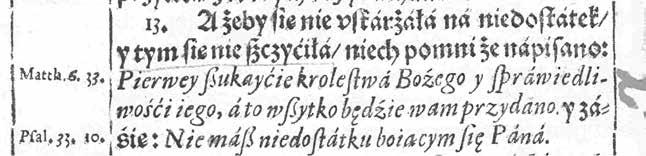 13. A żeby sie nie vskárżáłá ná niedostátek/
y tym sie nie szczyćiłá/ niech pomni że nápisano:
Matth. 6. 33. Pierwey szukayćie krolestwá Bożego y spráwiedli-
wośći iego, á to wszytko będzie wam przydano. y zá-
Psal. 33. 10. śie: Nie mász niedostátku boiacym się Páná.